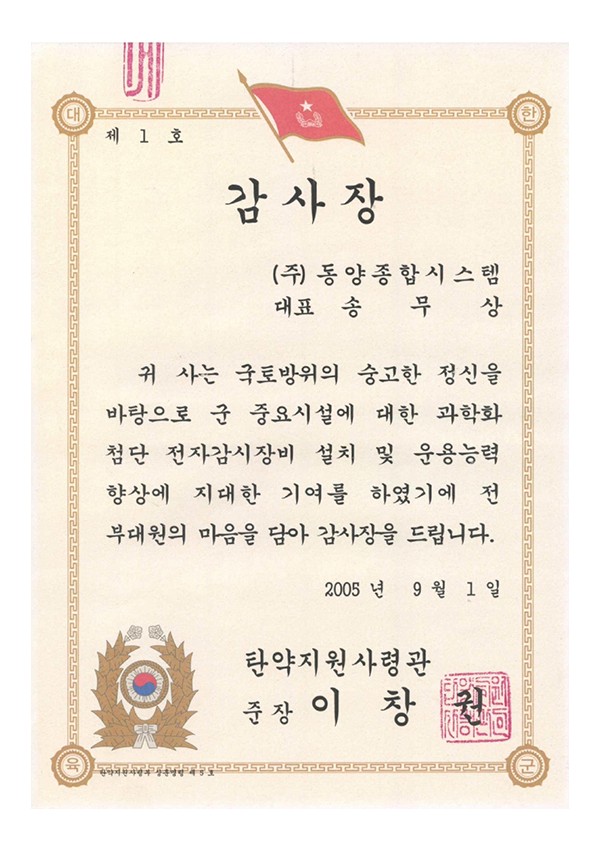 대 한
제 1 호
감사장
(주) 동양종합시스템
대표 송 무 상
귀 사는 국토방위의 숭고한 정신을
바탕으로 군 중요시설에 대한 과학화
첨단 전자감시장비 설치 및 운용능력
향상에 지대한 기여를 하였기에 전
부대원의 마음을 담아 감사장을 드립니다.
2005 년 9 월 1 일
탄약지원사령관
준장 이 창 권
육 군
탄약지원사령부 상훈명령 제 5 호